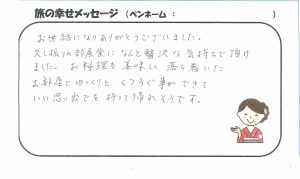 旅の幸せメッセージ（ペンネーム：　　　　）
お世話になりありがとうございました。
久し振りの部屋食になんと贅沢な気持ちで頂け
ました。お料理も美味しく落ち着いた
お部屋でゆっくりとくつろぐ事ができて
いい思い出を持って帰れそうです。